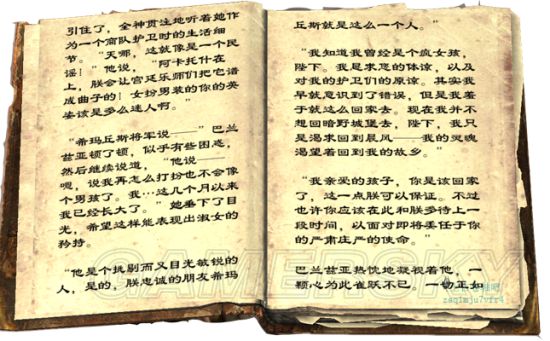 引住了，全神贯注地听着她作
为一个商队护卫时的生活细
节。“天哪，这就像是一个民
谣！”他说，“阿卡托什在
上，朕会让宫廷乐师们把它谱
成曲子的！女扮男装的你的英
姿该是多么迷人啊。”
“希玛丘斯将军说——”巴兰
兹亚顿了顿，似乎有些困惑，
然后继续说道，“他说——
嗯，说我再怎么打扮也不会像
个男孩了。我…这几个月以来
我已经长大了。”她垂下了目
光，希望这样能表现出淑女的
矜持。
“他是个挑剔而又目光敏锐的
人，是的，朕忠诚的朋友希玛
丘斯就是这么一个人。”
“我知道我曾经是个疯女孩，
陛下。我恳求您的体谅，以及
对我的护卫们的原谅。其实我
早就意识到了错误，但是我羞
于就这么回家去。现在我并不
想回暗野城堡去，陛下，我只
是渴求回到晨风——我的灵魂
渴望着回到我的故乡。”
“我亲爱的孩子，你是该回家
了，这一点朕可以保证。不过
也许你应该在此和朕多待上一
段时间，以面对即将委任于你
的严肃庄严的使命。”
巴兰兹亚热忱地凝视着他，一
颗心为此雀跃不已。一切正如
GAMERSKY